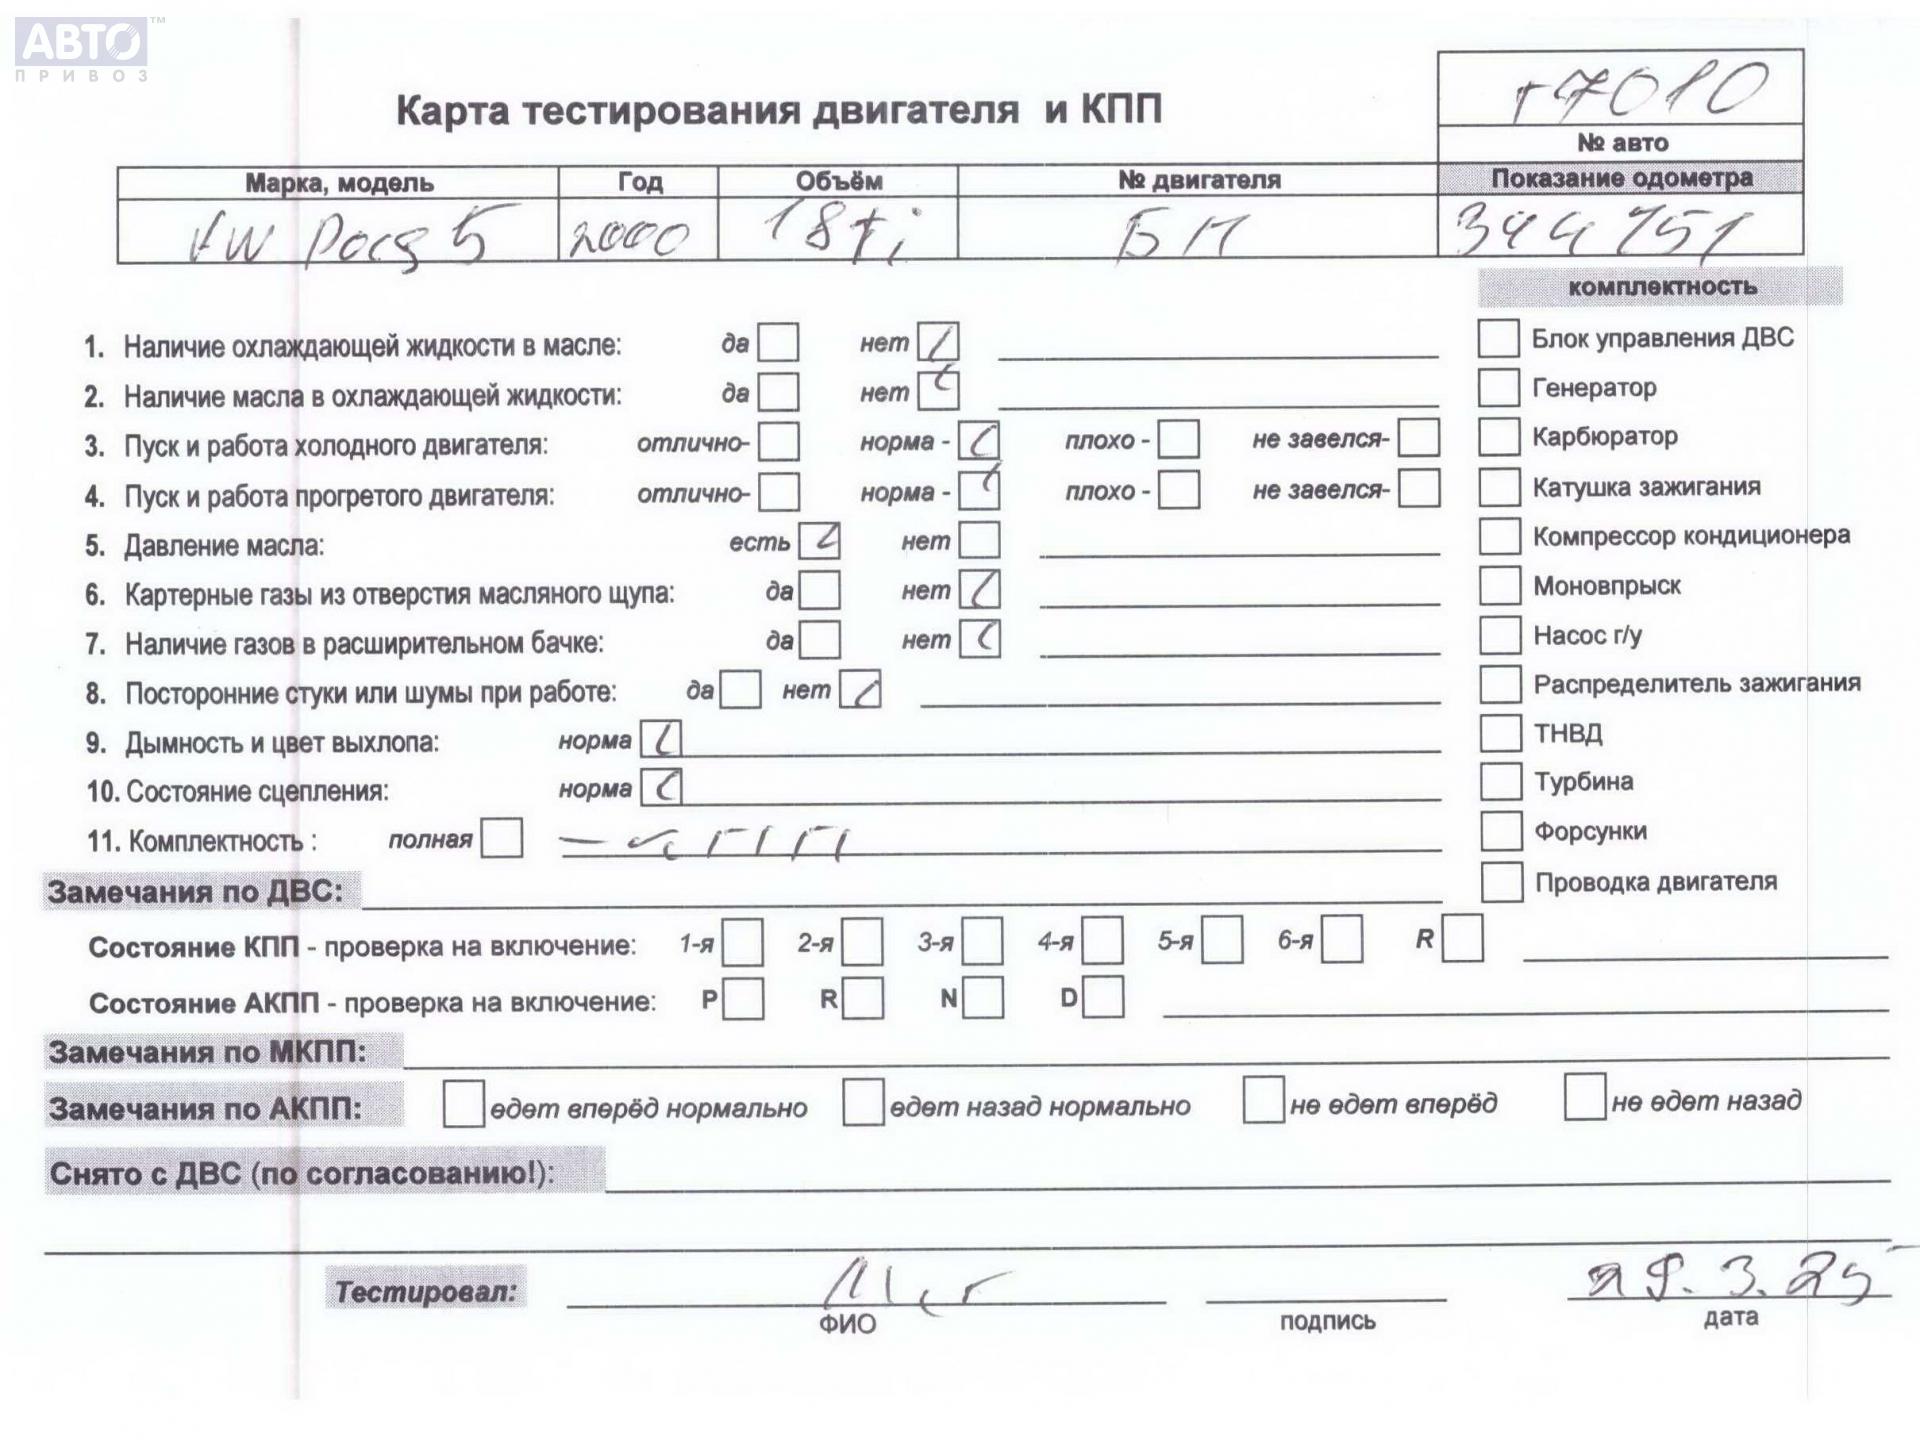 АВТО™
ПРИВОЗ
т7010
Карта тестирования двигателя и КПП
№ авто
Марка, модель Год Объём № двигателя Показание одометра
VW Пасс 5 2000 18ti БН 344151
комплектность
1. Наличие охлаждающей жидкости в масле: да нет Блок управления ДВС
2. Наличие масла в охлаждающей жидкости: да нет Генератор
3. Пуск и работа холодного двигателя: отлично- норма - плохо - не завелся- Карбюратор
4. Пуск и работа прогретого двигателя: отлично- норма - плохо - не завелся- Катушка зажигания
5. Давление масла: есть нет Компрессор кондиционера
6. Картерные газы из отверстия масляного щупа: да нет Моновпрыск
7. Наличие газов в расширительном бачке: да нет Насос г/у
8. Посторонние стуки или шумы при работе: да нет Распределитель зажигания
9. Дымность и цвет выхлопа: норма ТНВД
10. Состояние сцепления: норма Турбина
11. Комплектность : полная Форсунки
Замечания по ДВС: Проводка двигателя
Состояние КПП - проверка на включение: 1-я 2-я 3-я 4-я 5-я 6-я R
Состояние АКПП - проверка на включение: P R N D
Замечания по МКПП:
Замечания по АКПП: едет вперёд нормально едет назад нормально не едет вперёд не едет назад
Снято с ДВС (по согласованию!):
Тестировал: 29.3.25
ФИО подпись дата